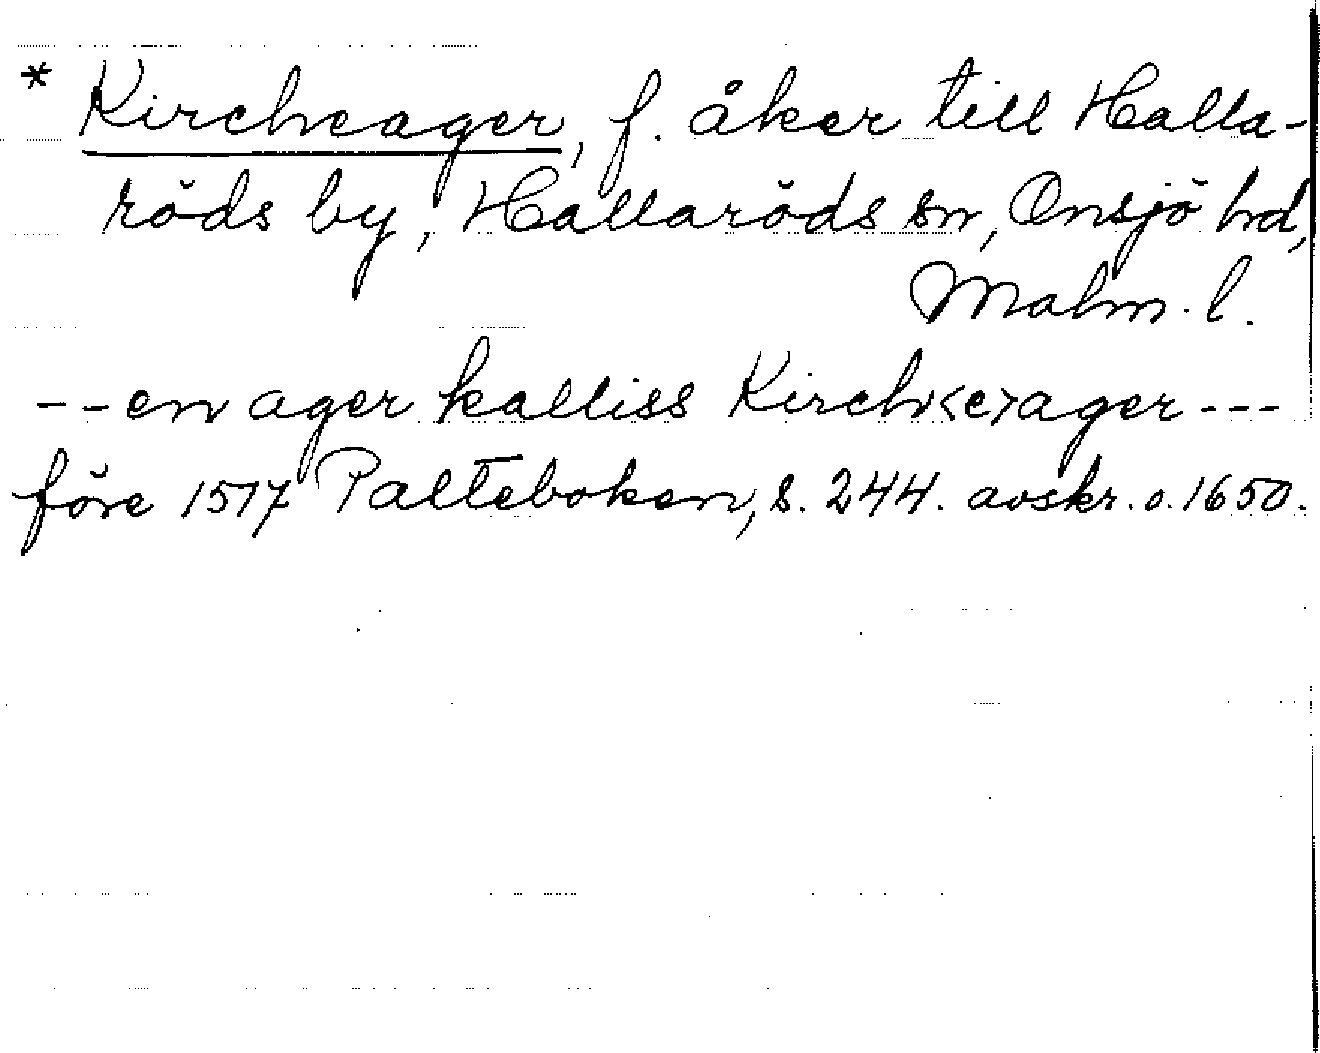 * Kircheager, f. åker till Halla-
röds by, Hallaröds sn, Onsjö hd,
Malm. l.
-- en ager kalliss Kirch<e>ager ---
före 1517 Palteboken, s. 244. avskr. o. 1650.